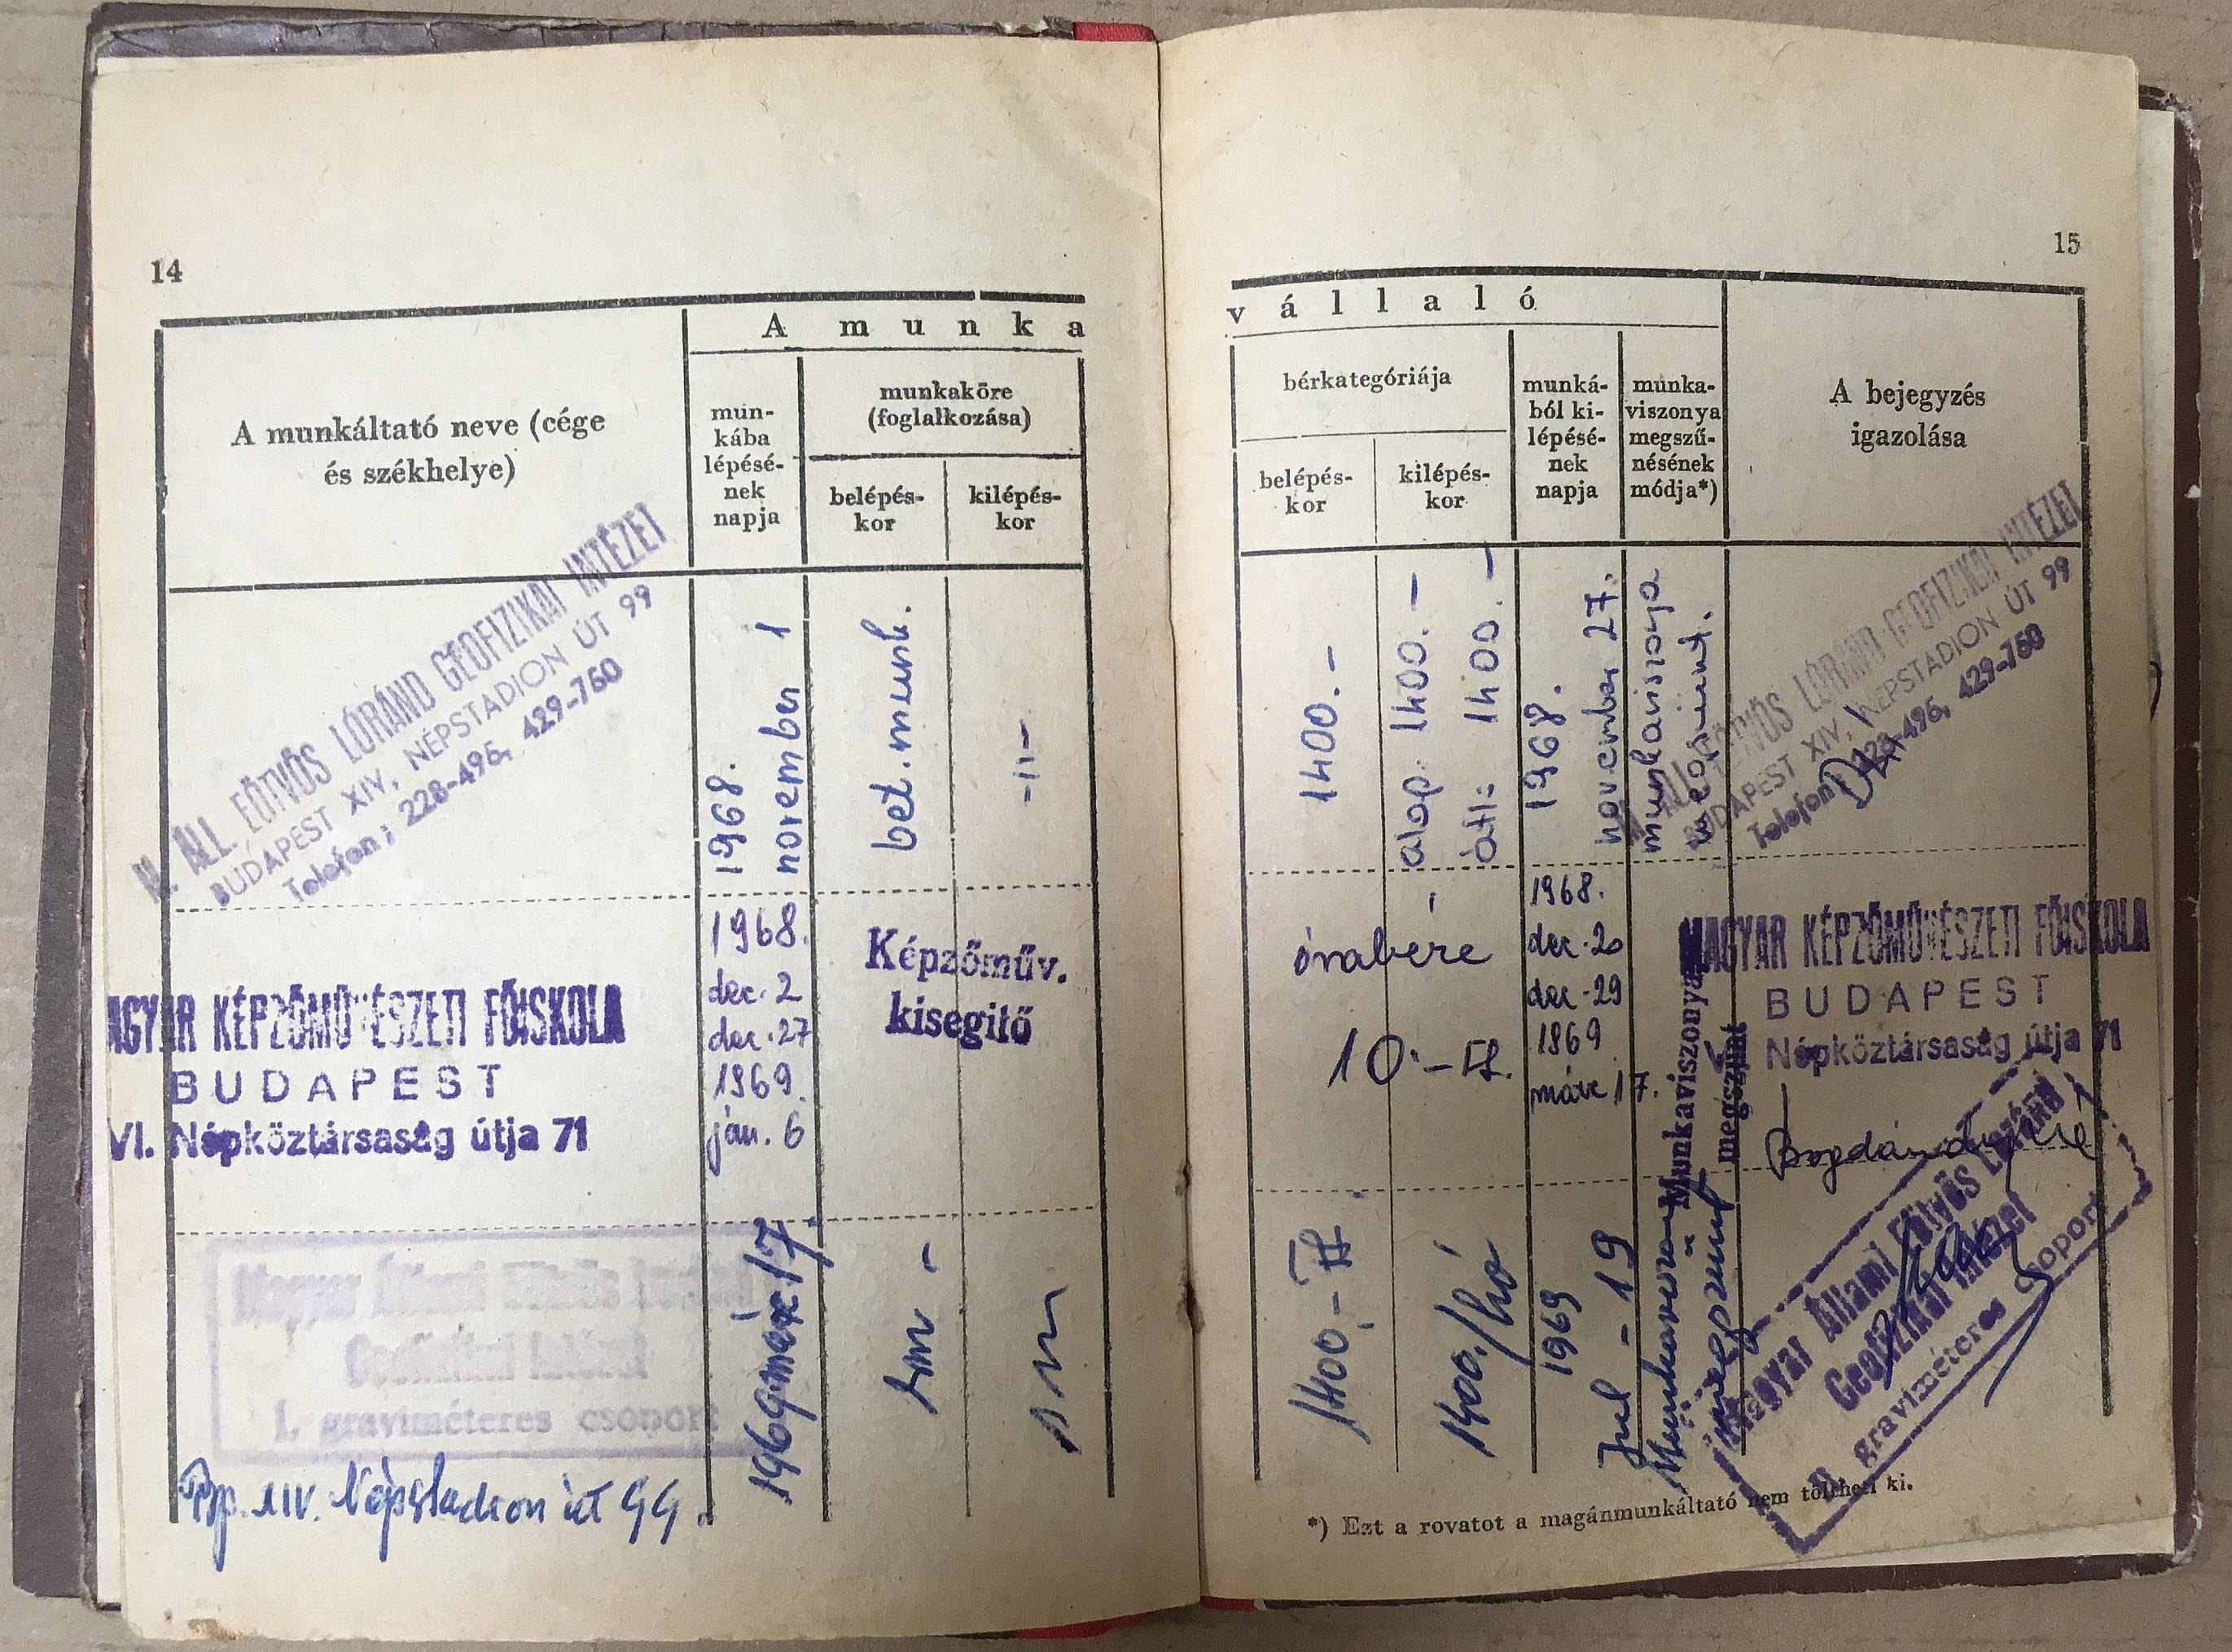 14
A munka
A munkáltató neve (cége
és székhelye)
mun-
kába
lépésé-
nek
napja
munkaköre
(foglalkozása)
belépés-
kor
kilépés-
kor
M. ÁLL. EÖTVÖS LÓRÁND GEOFIZIKAI INTÉZET
BUDAPEST XIV, NÉPSTADION ÚT 99
Telefon; 228-496, 429-760
1968.
november 1
bet. munk.
-11-
AGYAR KÉPZŐMŰVÉSZETI FŐISKOLA
BUDAPEST
VI. Népköztársaság útja 71
1968.
dec. 2
dec. 27
1969.
ján. 6
Képzőműv.
kisegitő
Magyar Állami Eötvös Loránd
Geofizikai Intézet
I. graviméteres csoport
Bp. XIV. Népstadion út 99.
1969 márc 17
15
vállaló
bérkategóriája
belépés-
kor
kilépés-
kor
munká-
ból ki-
lépésé-
nek
napja
munka-
viszonya
megszű-
nésének
módja*)
A bejegyzés
igazolása
1400.-
alap. 1400.-
átl: 1400.-
1968.
november 27.
munkaviszonya
megszünt.
M. ÁLL. EÖTVÖS LÓRÁND GEOFIZIKAI INTÉZET
BUDAPEST XIV, NÉPSTADION ÚT 99
Telefon; 228-496, 429-760
órabére
10.-Ft.
1968.
dec. 20
dec. 29
1869
márc 17.
Munkaviszonya
megszünt
MAGYAR KÉPZŐMŰVÉSZETI FŐISKOLA
BUDAPEST
V. Népköztársaság útja 71
1400.-Ft.
1400./hó
1969
Jul - 19
Munkaviszony
megszünt
Magyar Állami Eötvös Loránd
Geofizikai Intézet
graviméteres csoport
*) Ezt a rovatot a magánmunkáltató nem töltheti ki.